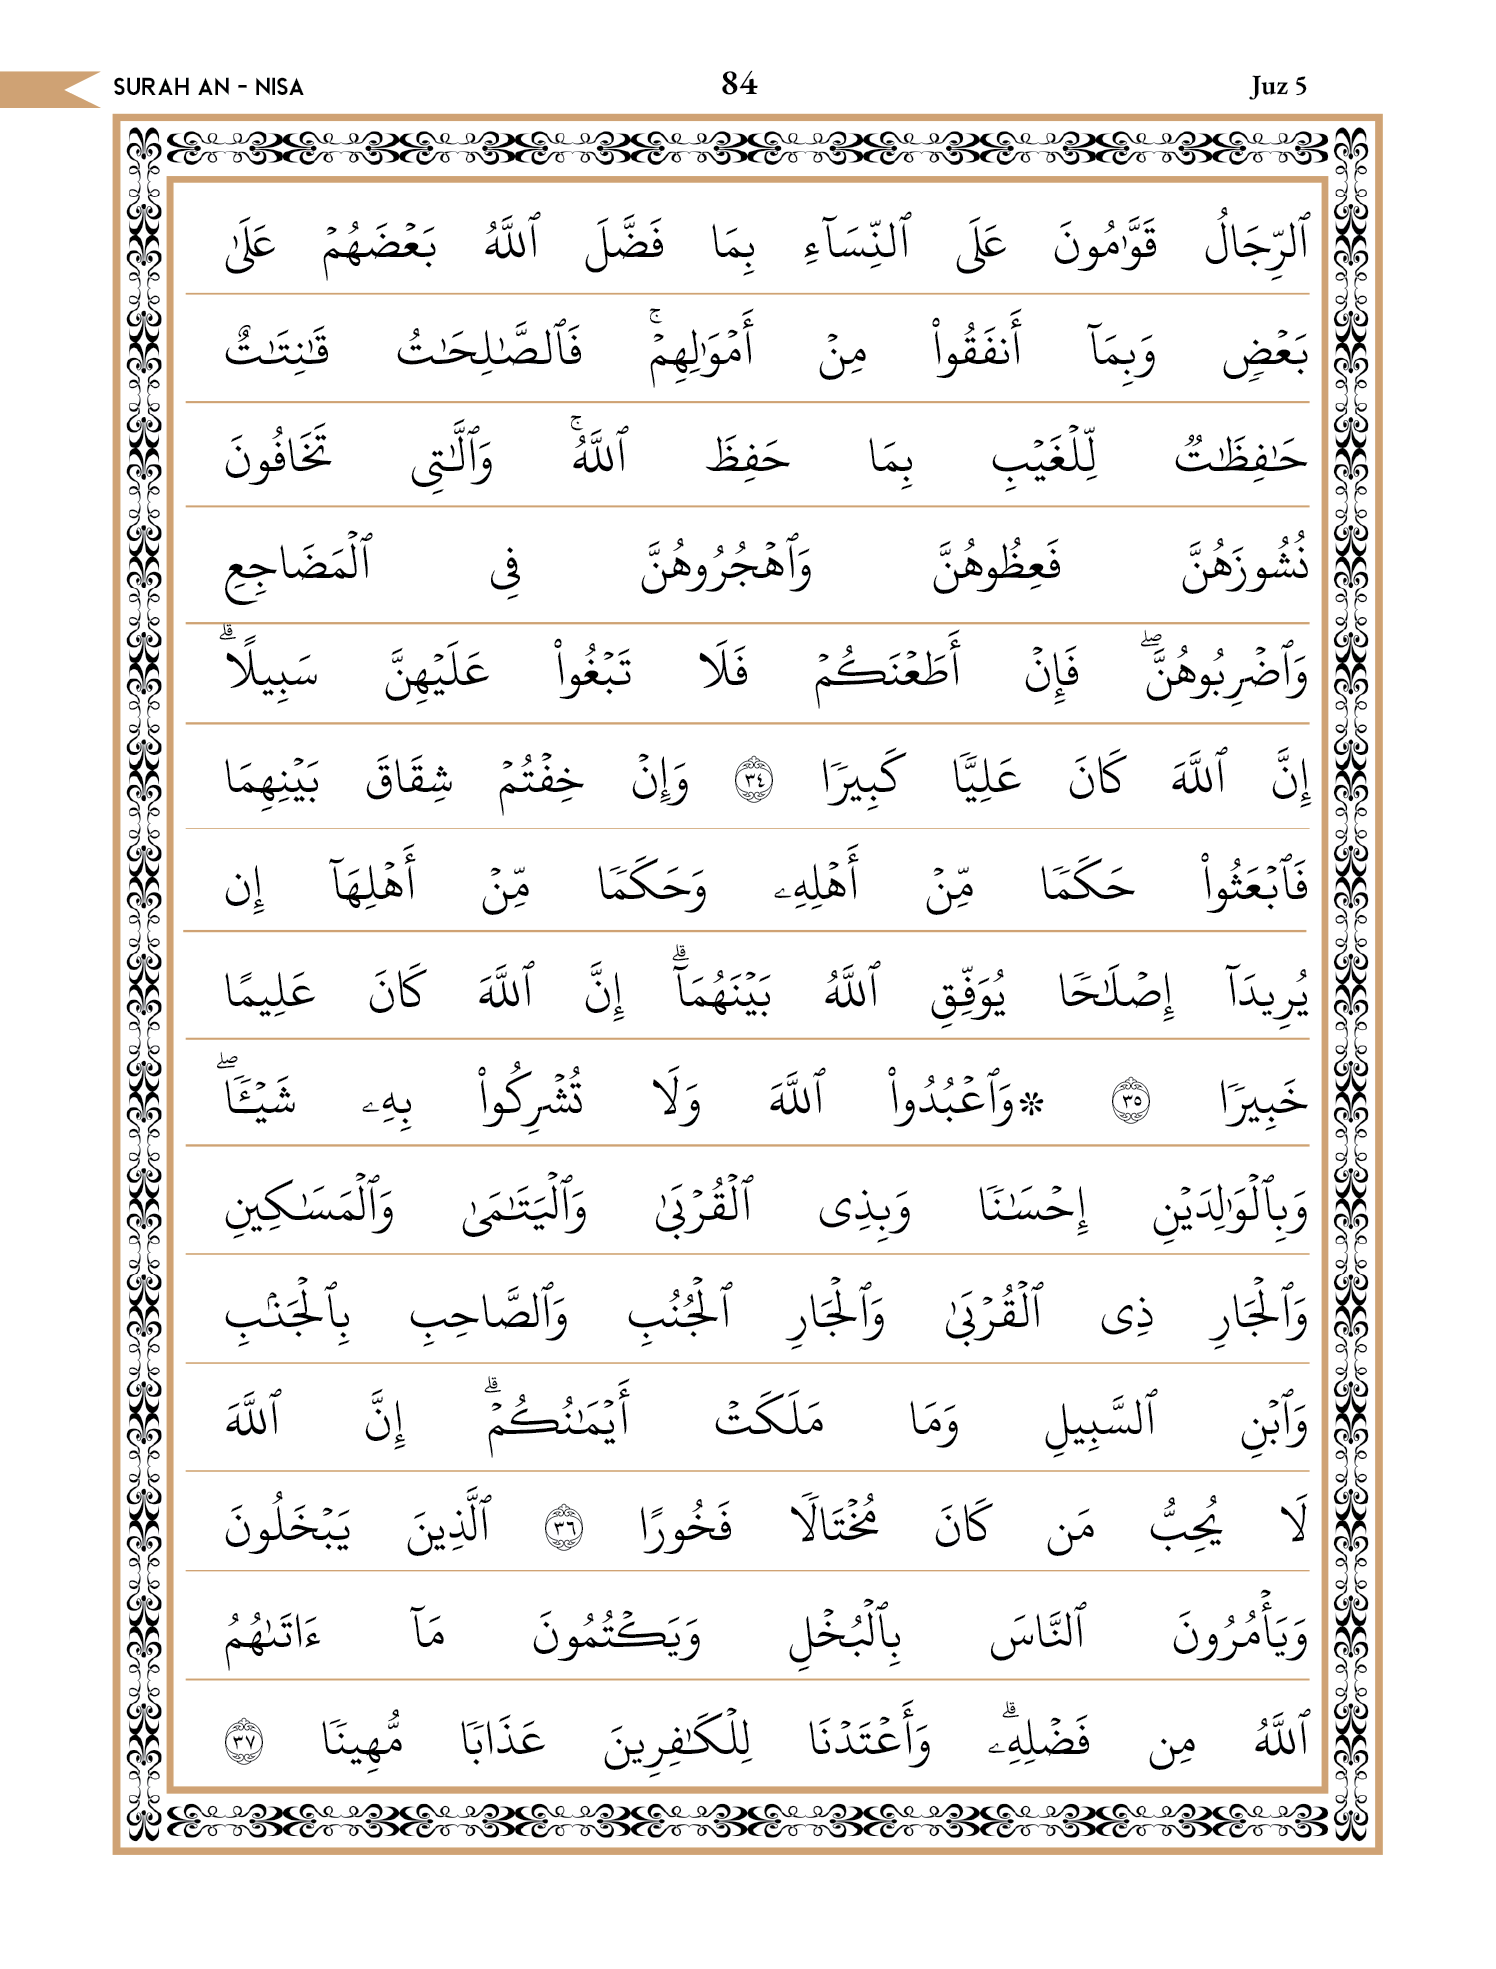 SURAH AN - NISA 84 Juz 5
ٱلرِّجَالُ قَوَّٰمُونَ عَلَى ٱلنِّسَآءِ بِمَا فَضَّلَ ٱللَّهُ بَعْضَهُمْ عَلَىٰ
بَعْضٍ وَبِمَآ أَنفَقُوا۟ مِنْ أَمْوَٰلِهِمْ ۚ فَٱلصَّـٰلِحَـٰتُ قَـٰنِتَـٰتٌ
حَـٰفِظَـٰتٌ لِّلْغَيْبِ بِمَا حَفِظَ ٱللَّهُ ۚ وَٱلَّـٰتِى تَخَافُونَ
نُشُوزَهُنَّ فَعِظُوهُنَّ وَٱهْجُرُوهُنَّ فِى ٱلْمَضَاجِعِ
وَٱضْرِبُوهُنَّ ۖ فَإِنْ أَطَعْنَكُمْ فَلَا تَبْغُوا۟ عَلَيْهِنَّ سَبِيلًا ۗ
إِنَّ ٱللَّهَ كَانَ عَلِيًّا كَبِيرًا ٣٤ وَإِنْ خِفْتُمْ شِقَاقَ بَيْنِهِمَا
فَٱبْعَثُوا۟ حَكَمًا مِّنْ أَهْلِهِۦ وَحَكَمًا مِّنْ أَهْلِهَآ إِن
يُرِيدَآ إِصْلَـٰحًا يُوَفِّقِ ٱللَّهُ بَيْنَهُمَآ ۗ إِنَّ ٱللَّهَ كَانَ عَلِيمًا
خَبِيرًا ٣٥ ۞وَٱعْبُدُوا۟ ٱللَّهَ وَلَا تُشْرِكُوا۟ بِهِۦ شَيْـًٔا ۖ
وَبِٱلْوَٰلِدَيْنِ إِحْسَـٰنًا وَبِذِى ٱلْقُرْبَىٰ وَٱلْيَتَـٰمَىٰ وَٱلْمَسَـٰكِينِ
وَٱلْجَارِ ذِى ٱلْقُرْبَىٰ وَٱلْجَارِ ٱلْجُنُبِ وَٱلصَّاحِبِ بِٱلْجَنۢبِ
وَٱبْنِ ٱلسَّبِيلِ وَمَا مَلَكَتْ أَيْمَـٰنُكُمْ ۗ إِنَّ ٱللَّهَ
لَا يُحِبُّ مَن كَانَ مُخْتَالًا فَخُورًا ٣٦ ٱلَّذِينَ يَبْخَلُونَ
وَيَأْمُرُونَ ٱلنَّاسَ بِٱلْبُخْلِ وَيَكْتُمُونَ مَآ ءَاتَىٰهُمُ
ٱللَّهُ مِن فَضْلِهِۦ ۗ وَأَعْتَدْنَا لِلْكَـٰفِرِينَ عَذَابًا مُّهِينًا ٣٧